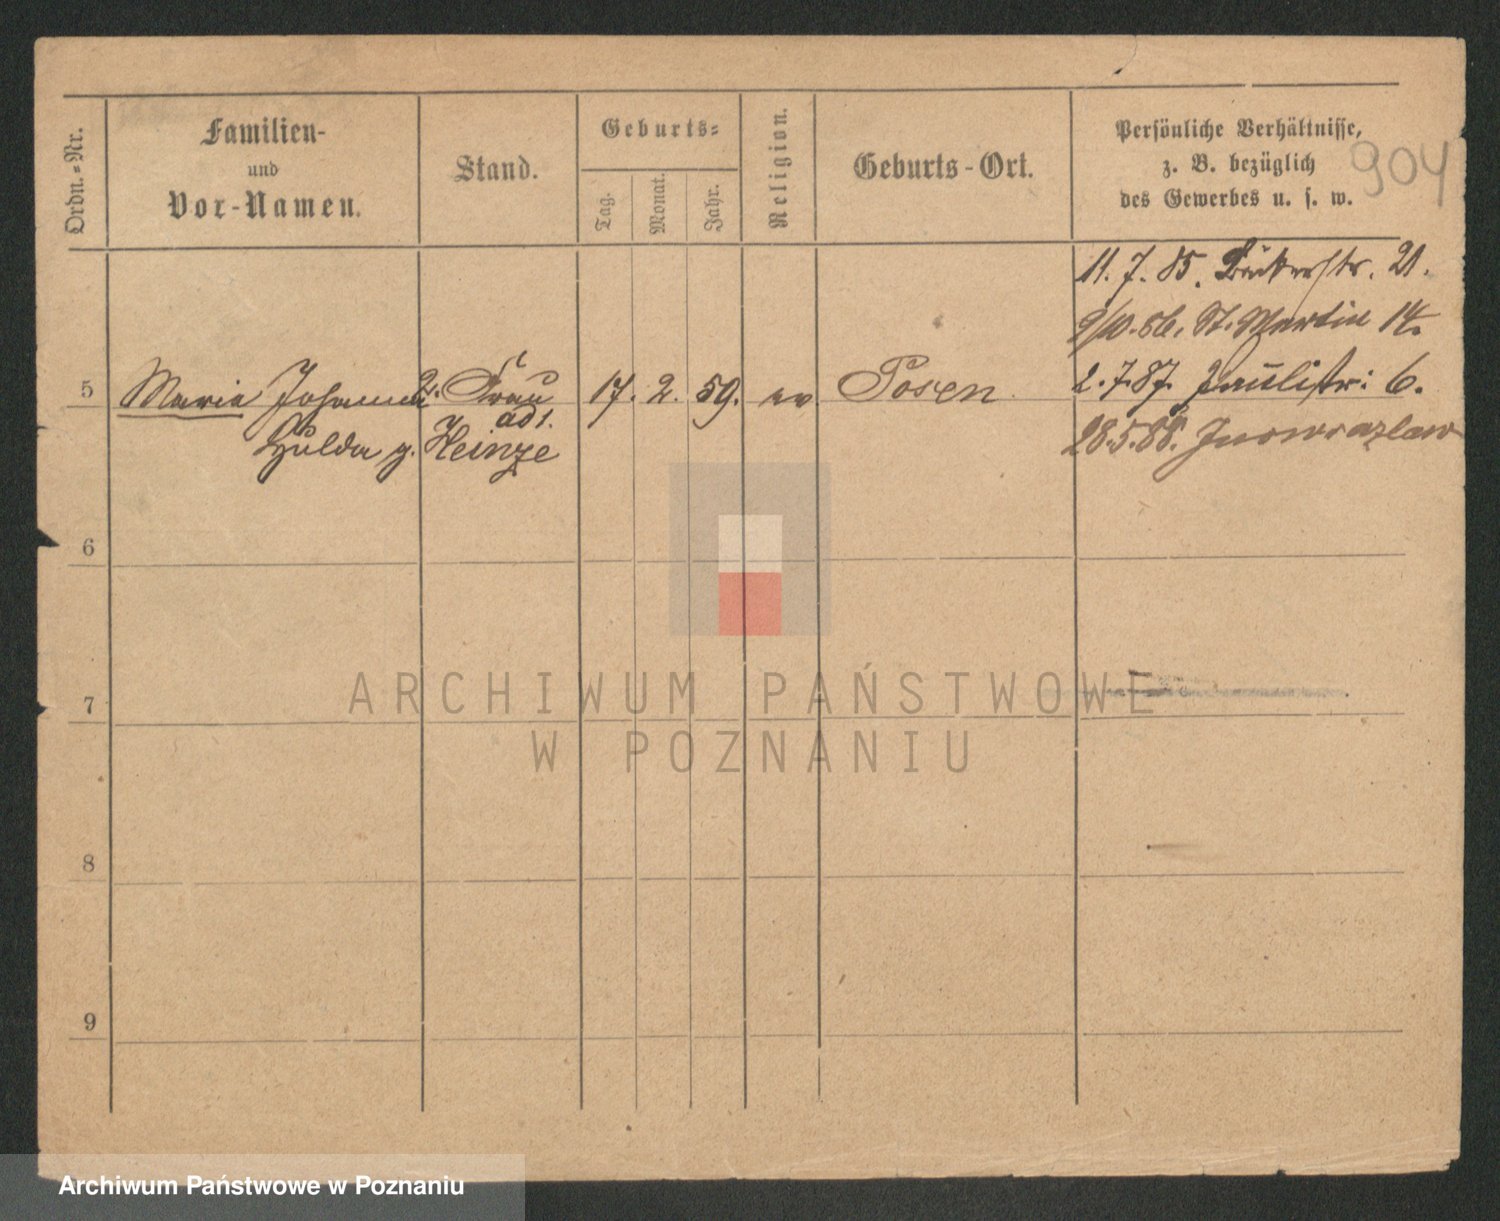 Ordn.-Nr.
Familien-
und
Vor-Namen.
Stand.
Geburts-
Tag.
Monat.
Jahr.
Religion.
Geburts-Ort.
Persönliche Verhältnisse,
z. B. bezüglich
des Gewerbes u. s. w.
904
11. 7. 85. Bäckerstr. 21.
9/10. 86. St. Martin 14.
2. 7. 87. Paulistr: 6.
28.5.88. Inowrazlaw
5 Maria Johanna 2. Frau 17. 2. 59. ev Posen
ad 1.
Hulda g. Heinze
6
7
8
9
ARCHIWUM PAŃSTWOWE
W POZNANIU
Archiwum Państwowe w Poznaniu